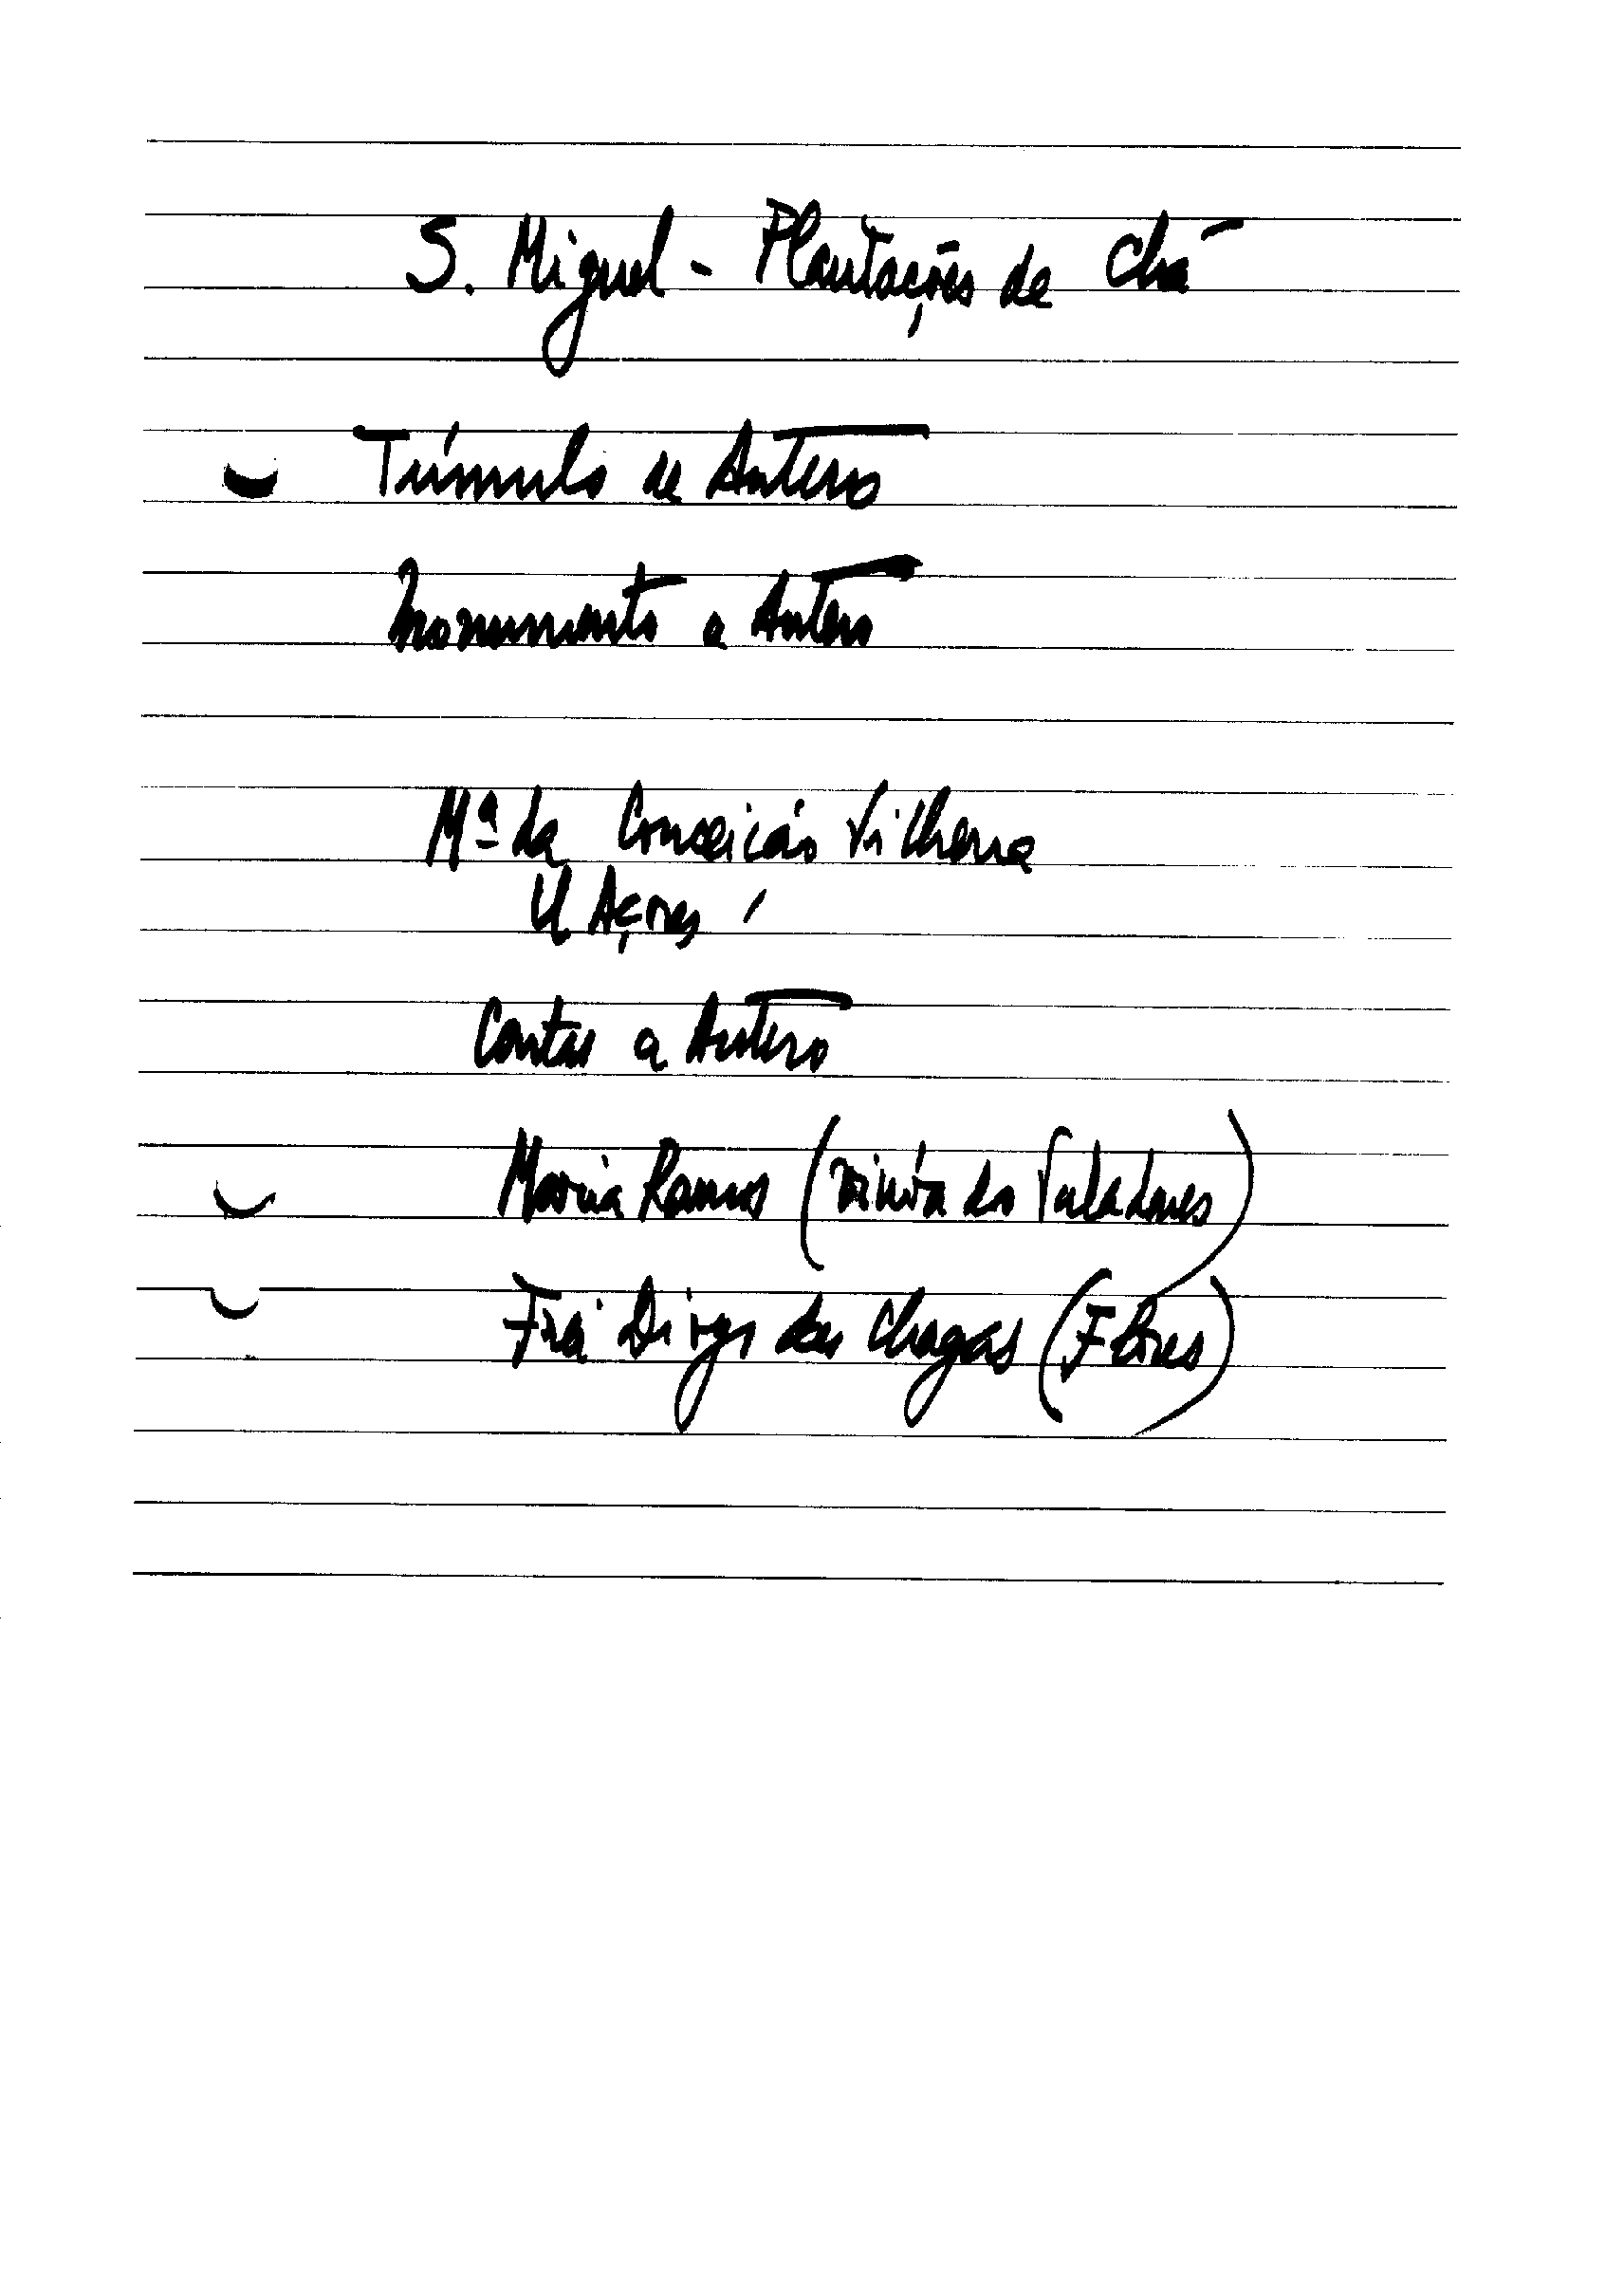 S. Miguel - Plantações de Chá
Túmulo de Antero
Monumento a Antero
Mª da Conceição Vilhena
U Açores
Cartas a Antero
Maria Ramos (viúva do Valadares)
Frei Diogo das Chagas (Flores)